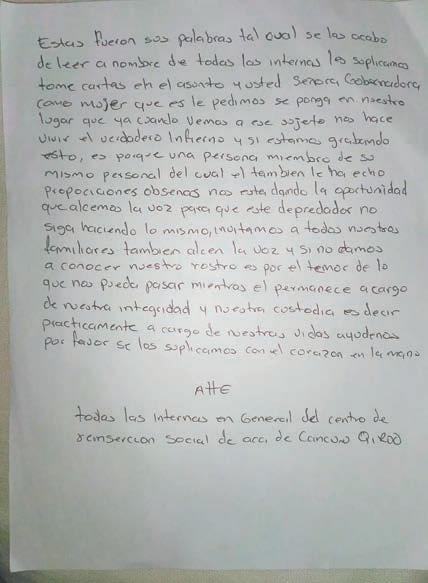 Estas fueron sus palabras tal cual se las acabo
de leer a nombre de todas las internas les suplicamos
tome cartas en el asunto y usted Señora Gobernadora
como mujer que es le pedimos se ponga en nuestro
lugar que ya cuando vemos a ese sojeto nos hace
vivir el verdadero Infierno y si estamos grabando
esto, es porque una persona miembro de su
mismo personal del cual el tambien le ha echo
propociciones obsenas nos esta dando la oportunidad
que alcemos la voz para que este depredador no
siga haciendo lo mismo, invitamos a todos nuestros
familiares tambien alcen la voz y si no damos
a conocer nuestro rostro es por el temor de lo
que nos pueda pasar mientras el permanece a cargo
de nuestra integridad y nuestra custodia es decir
practicamente a cargo de nuestras vidas ayudenos
por favor se los suplicamos con el corazon en la mano
Atte
todas las internas en General del centro de
reinsercion social de aca de Cancun Q.ROO